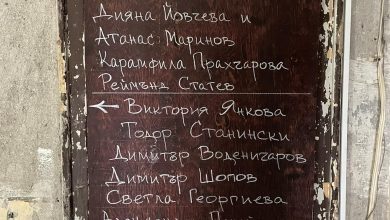 Дияна Йовчева и
Атанас Маринов
Карамфила Прахчарова
Реймънд Статев
← Виктория Янкова
Тодор Станински
Димитър Воденичаров
Димитър Шопов
Светла Георгиева